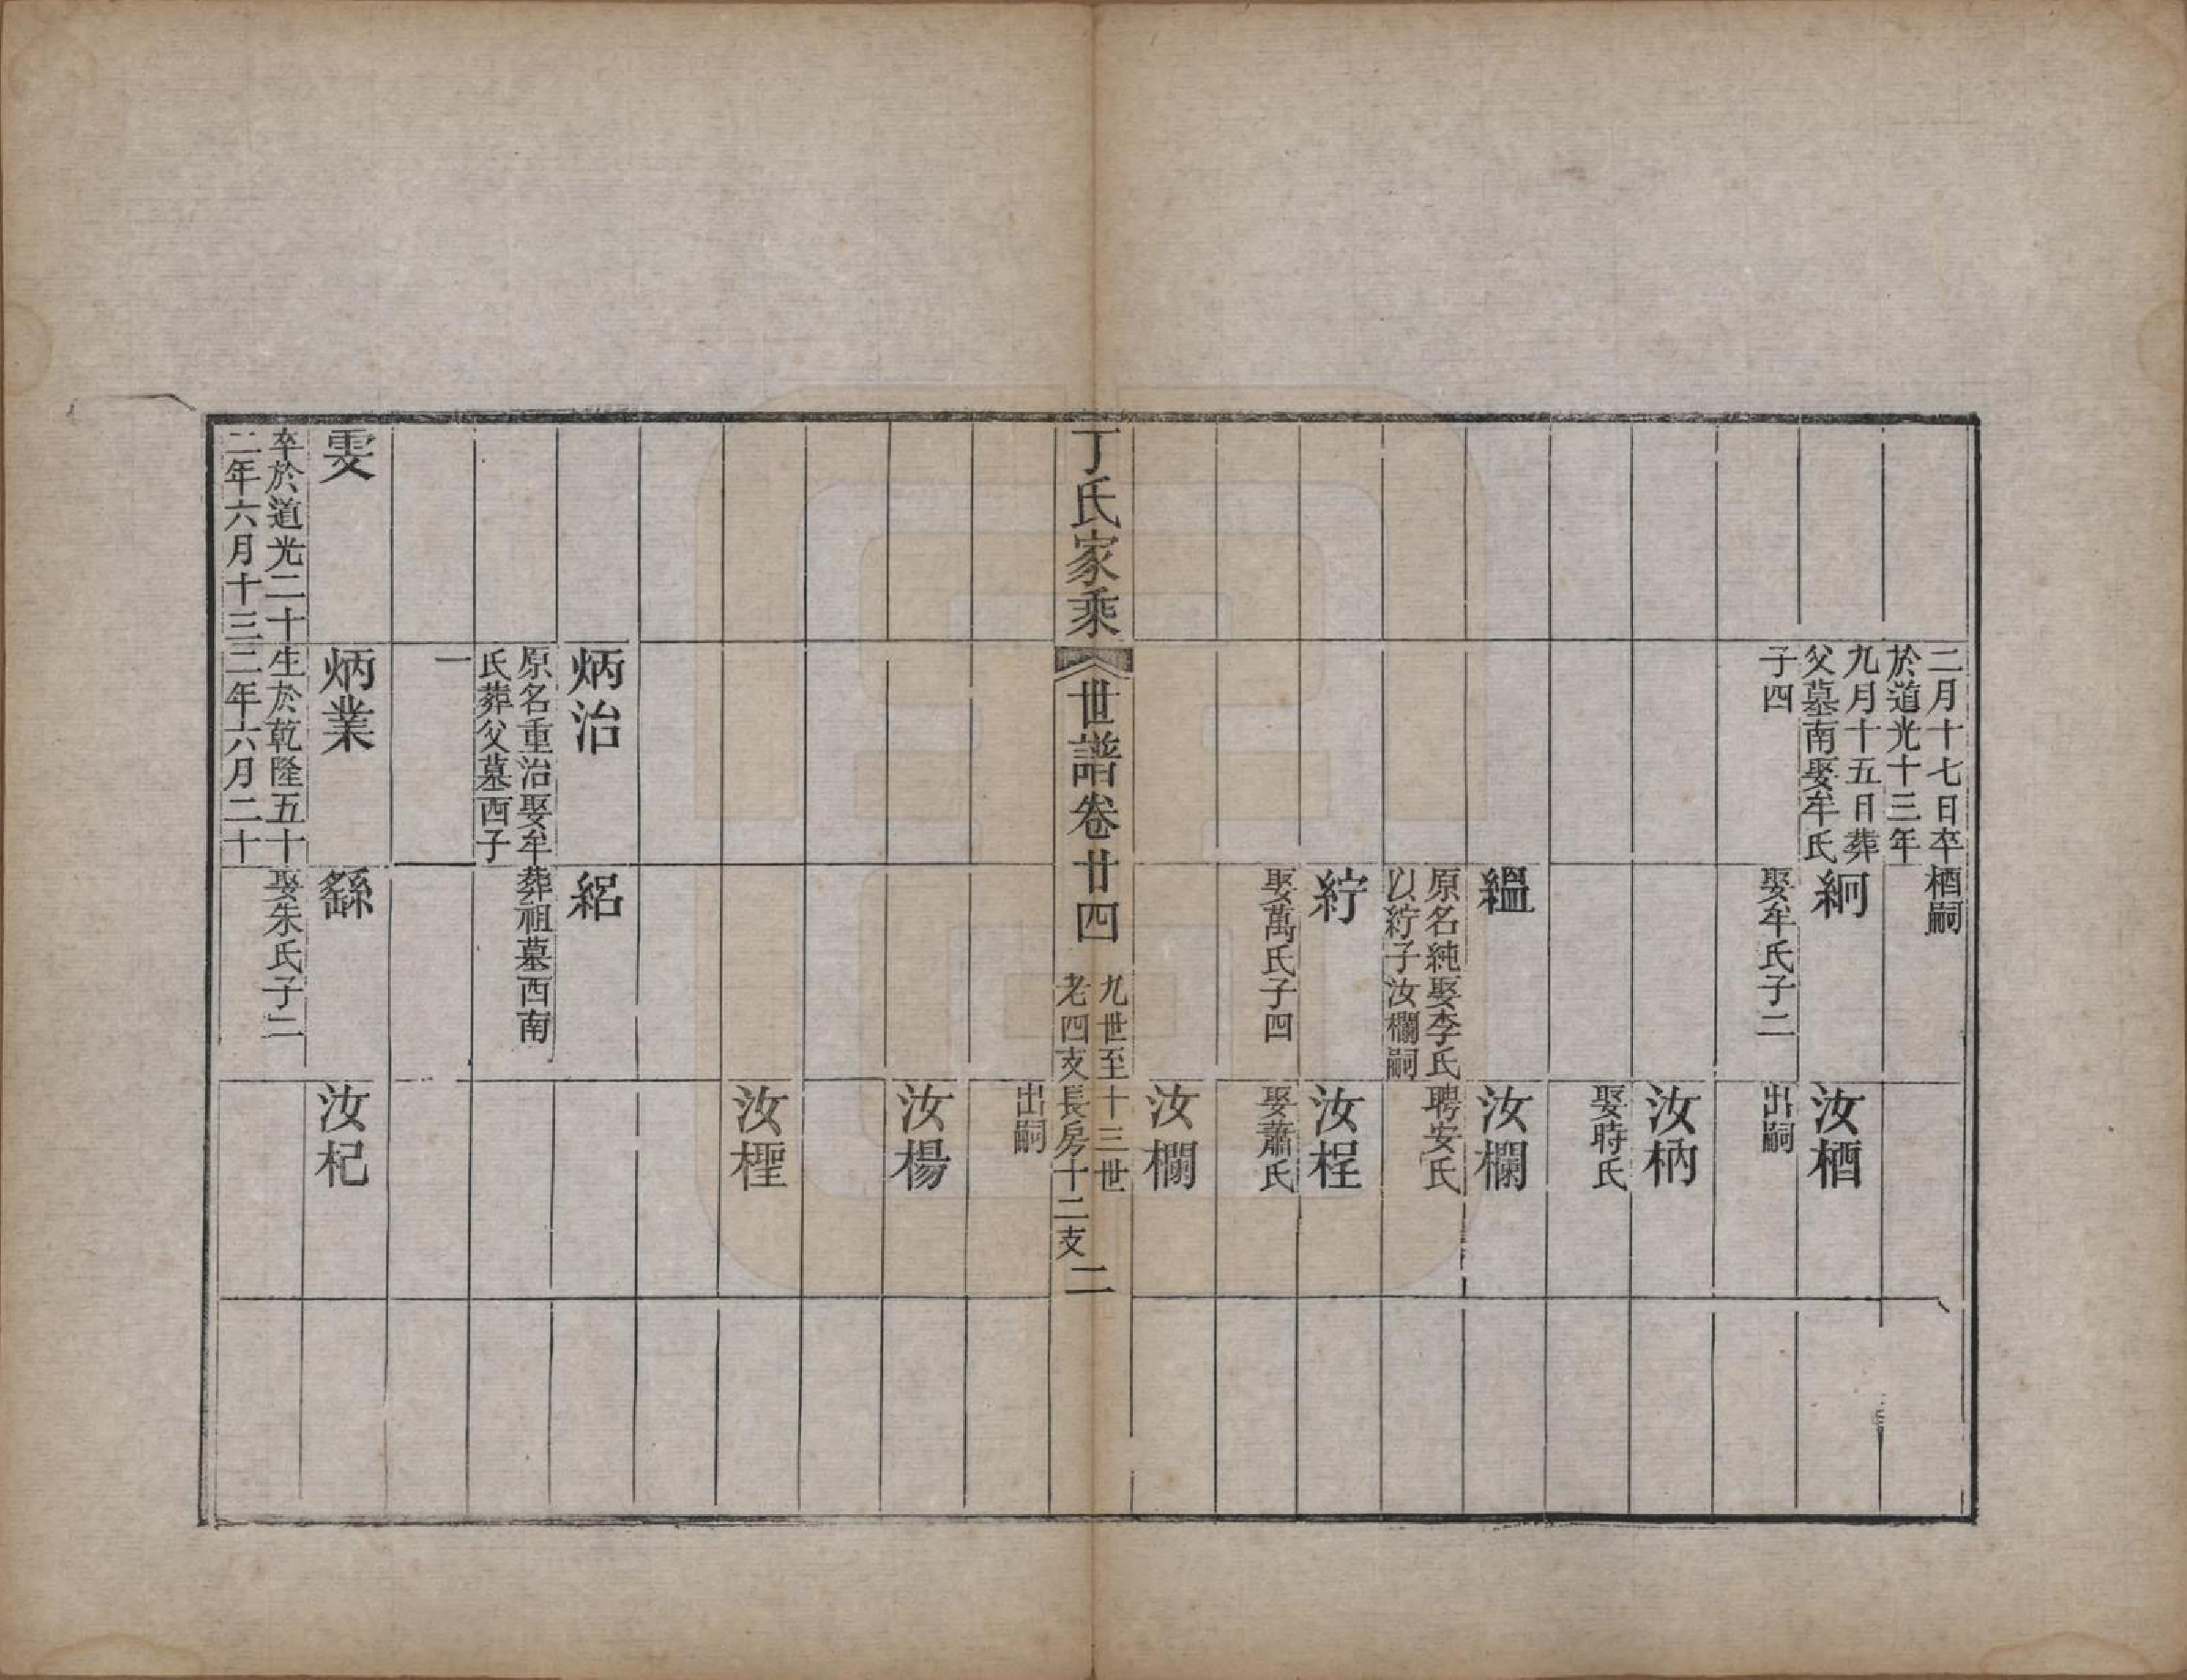 二月十七日卒
於道光十三年
九月十五日葬
父墓南娶牟氏
子四
栖嗣
絅
娶牟氏子二
汝栖
出嗣
汝柄
娶時氏
縕
原名純娶李氏
以紵子汝欄嗣
汝欄
聘安氏
紵
娶萬氏子四
汝桯
娶蕭氏
汝欄
丁氏家乘
世譜卷廿四
九世至十三世
老四支長房十二支
二
出嗣
汝楊
汝檉
炳治
原名重治娶牟
氏葬父墓西子
一
紹
葬祖墓西南
雯
卒於道光二十
二年六月十三
炳業
生於乾隆五十
二年六月二十
繇
娶朱氏子二
汝杞